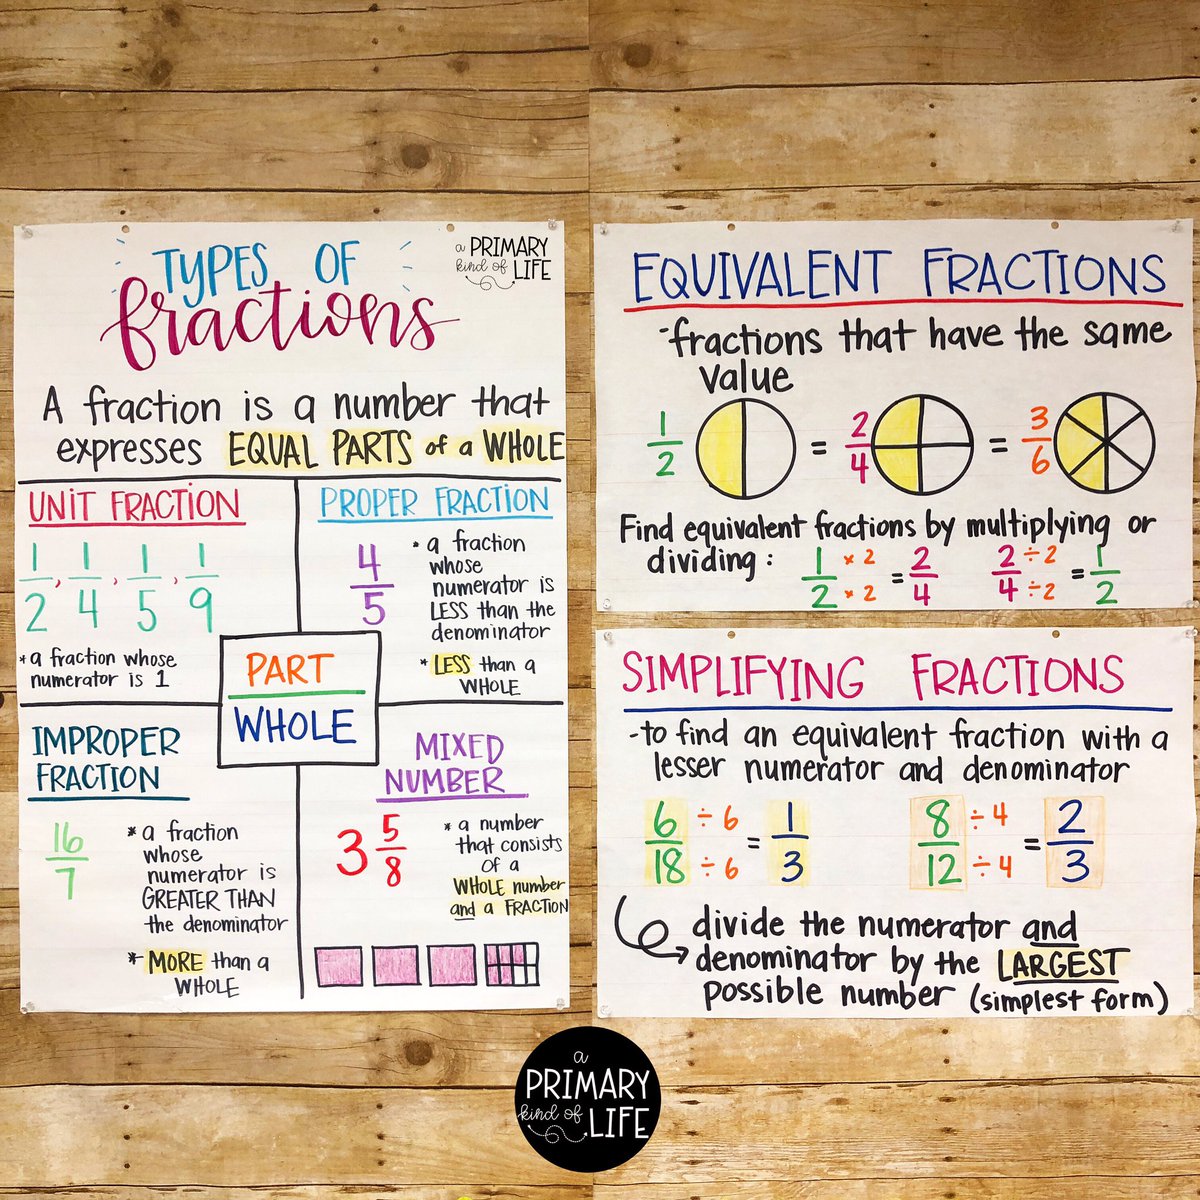 TYPES OF
fractions
a PRIMARY
kind of LIFE
A fraction is a number that
expresses EQUAL PARTS of a WHOLE
UNIT FRACTION
1/2, 1/4, 1/5, 1/9
* a fraction whose
numerator is 1
PROPER FRACTION
4/5
* a fraction
whose
numerator is
LESS than the
denominator
* LESS than a
WHOLE
PART
WHOLE
IMPROPER
FRACTION
16/7
* a fraction
whose
numerator is
GREATER THAN
the denominator
* MORE than a
WHOLE
MIXED
NUMBER
3 5/8
* a number
that consists
of a
WHOLE number
and a FRACTION
EQUIVALENT FRACTIONS
-fractions that have the same
value
1/2 = 2/4 = 3/6
Find equivalent fractions by multiplying or
dividing:
1/2 × 2 / × 2 = 2/4
2/4 ÷ 2 / ÷ 2 = 1/2
SIMPLIFYING FRACTIONS
-to find an equivalent fraction with a
lesser numerator and denominator
6/18 ÷ 6 / ÷ 6 = 1/3
8/12 ÷ 4 / ÷ 4 = 2/3
divide the numerator and
denominator by the LARGEST
possible number (simplest form)
a
PRIMARY
kind of
LIFE